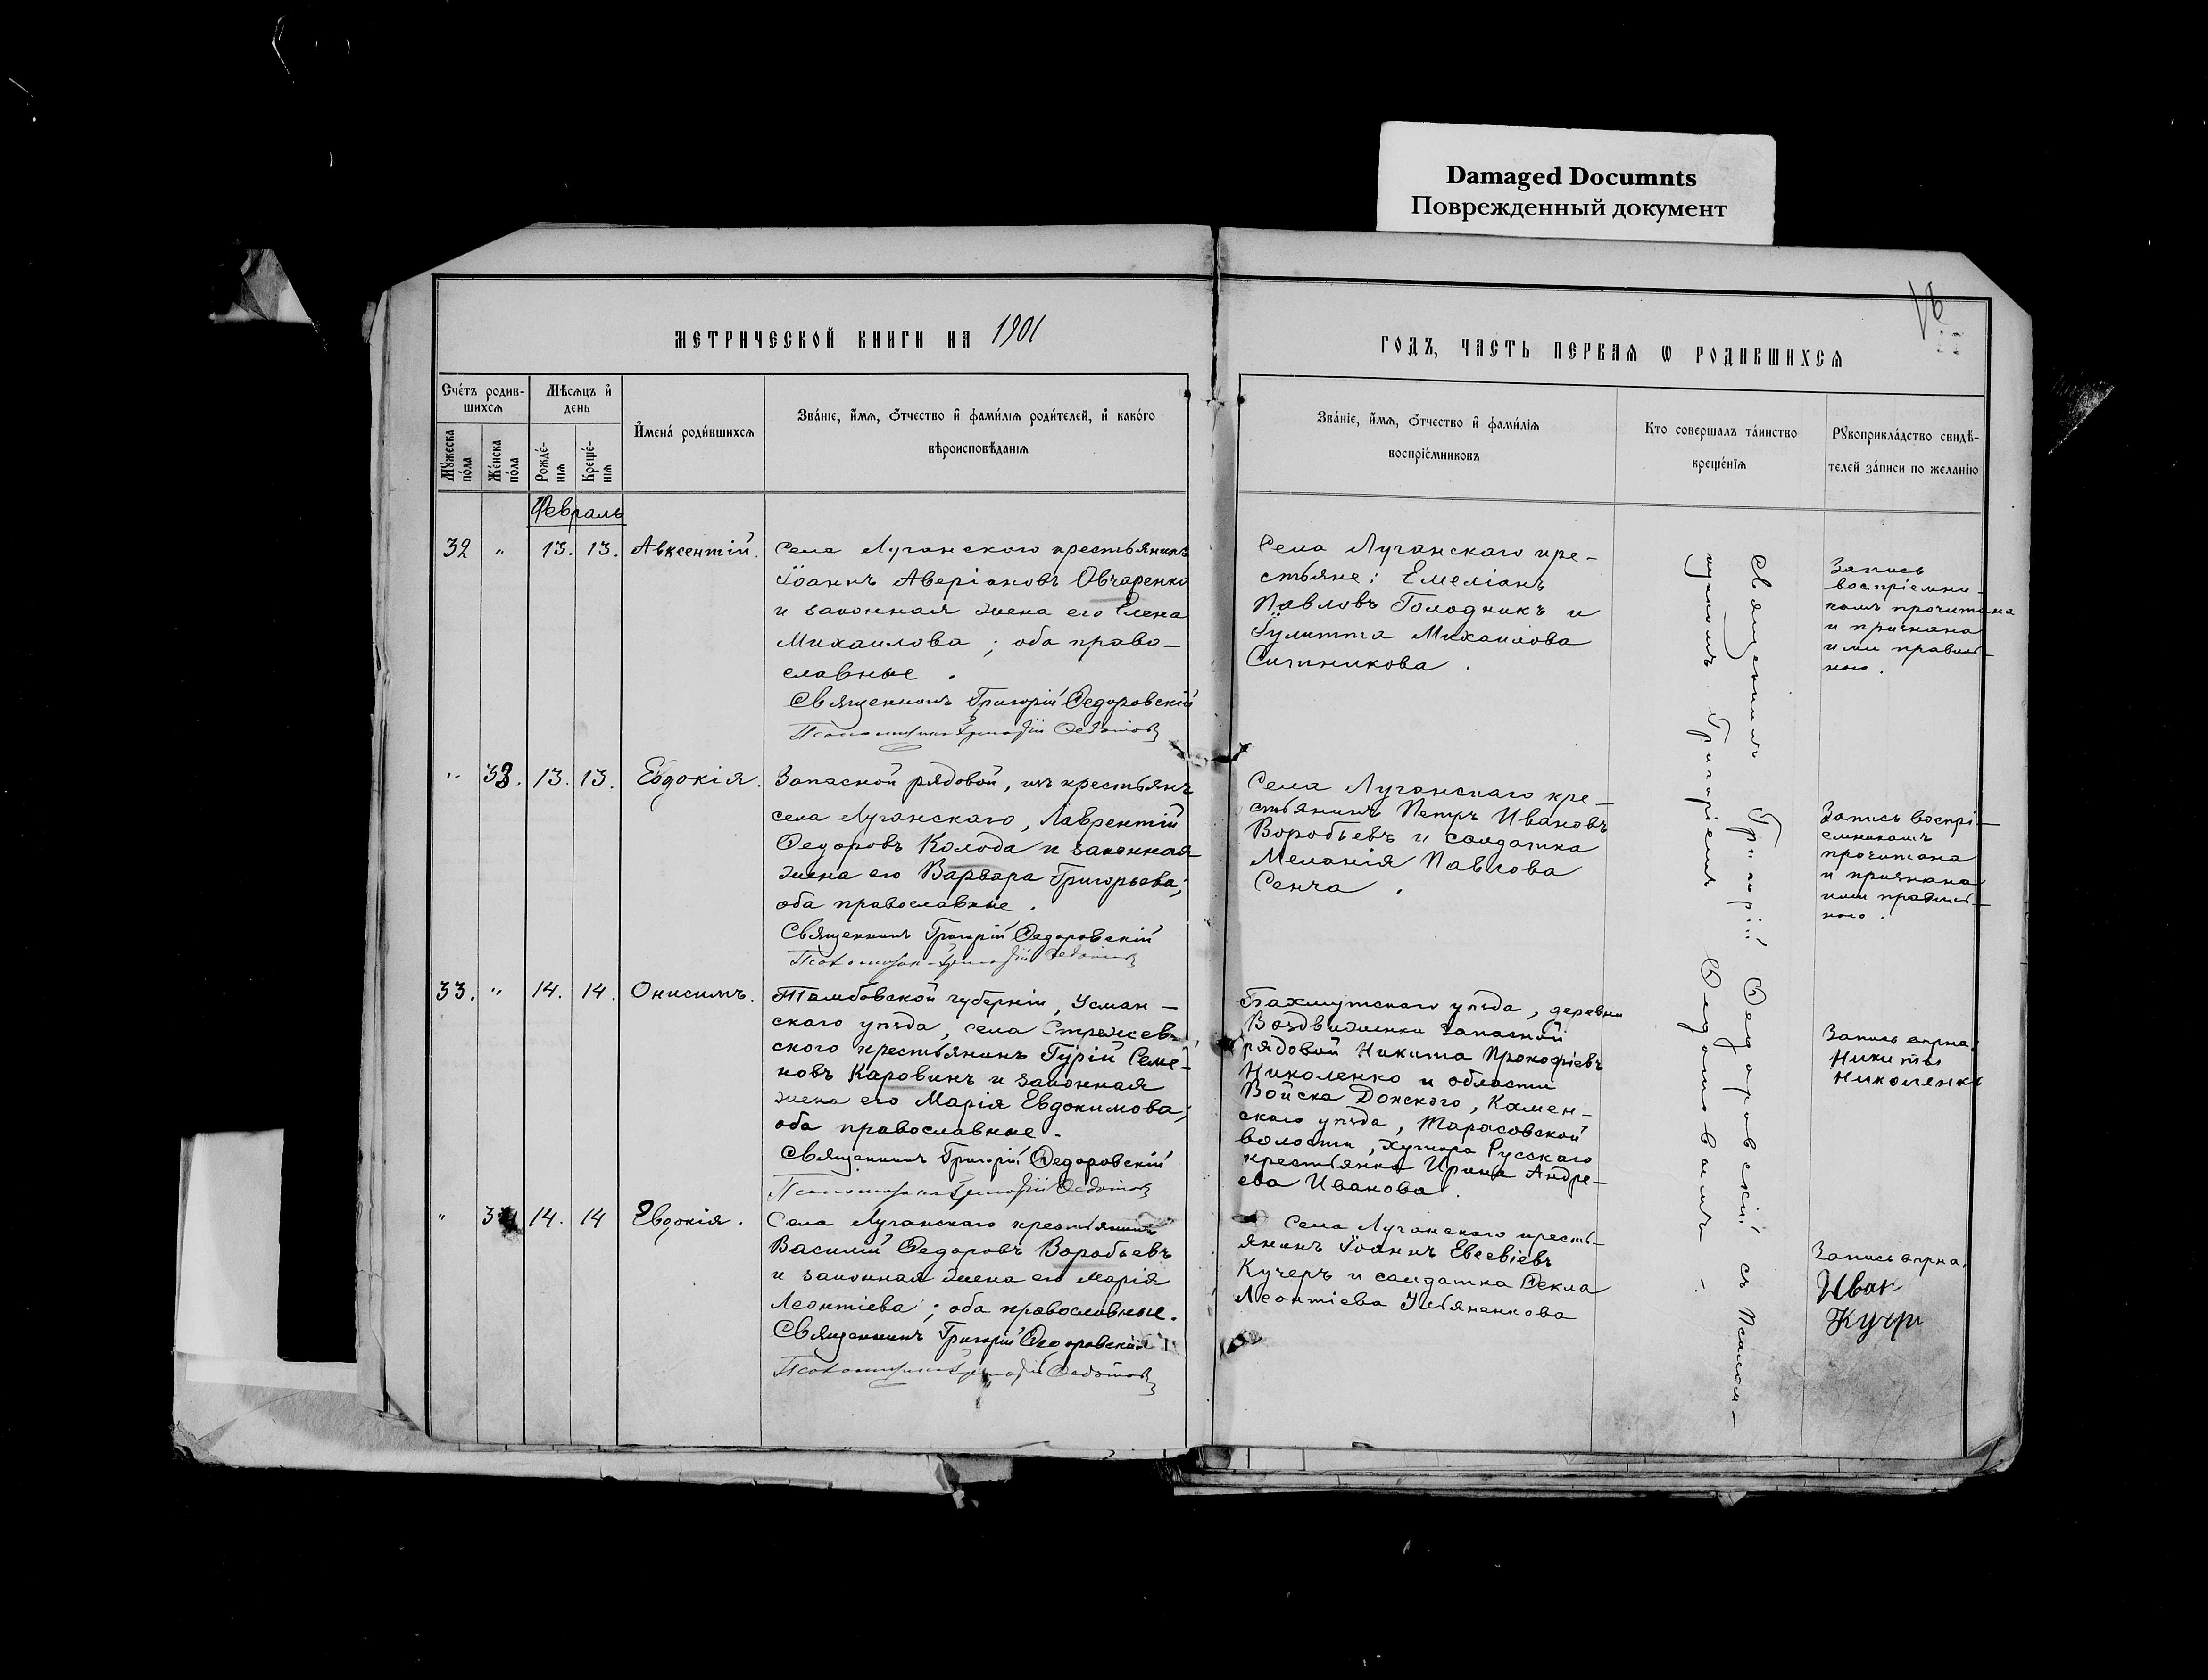 Damaged Documnts
Поврежденный документ
МЕТРИЧЕСКОЙ КНИГИ НА 1901
ГОДЪ, ЧАСТЬ ПЕРВАЯ Ѡ РОДИВШИХСЯ
Сче́тъ родив-
шихсѧ
Мѣсѧцъ и҆
день
Мꙋжеска
по́ла
Же́нска
по́ла
Рожде́-
нїѧ
Креще́-
нїѧ
И҆мена́ роди́вшихсѧ
Зва́нїе, и҆́мѧ, ѻ҆́тчество и҆ фами́лїѧ роди́телей, и҆ како́гѡ
вѣроисповѣ́данїѧ
Зва́нїе, и҆́мѧ, ѻ҆́тчество и҆ фами́лїѧ
воспрїе́мникѡвъ
Кто совершалъ та́инство
креще́нїѧ
Рꙋкоприкла́дство свидѣ́-
телей за́писи по жела́нїю
Февраль
32 " 13. 13. Авксентій.
Села Луганского крестьянинъ
Іоаннъ Аверіановъ Овчаренко
и законная жена его Елена
Михаилова ; оба право-
славные .
Священникъ Григорій Ѳедоровскій
Псаломщикъ Григорій Ѳедотовъ
Села Луганскаго кре-
стьяне: Емеліанъ
Павловъ Голодникъ и
Іулитта Михаилова
Ситникова .
Запись
воспріемни-
комъ прочитана
и признана
ими правиль-
ною .
" 33. 13. 13. Евдокія.
Запасной рядовой, изъ крестьянъ
села Луганскаго, Лаврентій
Ѳедоровъ Колода и законная
жена его Варвара Григорьева;
оба православные .
Священникъ Григорій Ѳедоровскій
Псаломщикъ Григорій Ѳедотовъ
Села Луганскаго кре-
стьянинъ Петръ Ивановъ
Воробьевъ и солдатка
Меланія Павлова
Сенча .
Запись воспрі-
емникамъ
прочитана
и признана
ими правиль-
ною .
33. " 14. 14. Онисимъ.
Тамбовской губерніи, Усман-
скаго уѣзда, села Стрежев-
ского крестьянинъ Гурій Семе-
новъ Каровинъ и законная
жена его Марія Евдокимова;
оба православные.
Священникъ Григорій Ѳедоровскій
Псаломщикъ Григорій Ѳедотовъ
Бахмутскаго уѣзда, деревни
Воздвиженки запасной
рядовой Никита Прокофіевъ
Николенко и области
Войска Донского, Камен-
скаго уѣзда, Тарасовской
волости, хутора Русскаго
крестьянка Ирина Андре-
ева Иванова .
Запись вѣрна:
Никита
Николенко
" 14. 14 Евдокія.
Села Луганскаго крестьянинъ
Василій Ѳедоровъ Воробьевъ
и законная жена его Марія
Леонтіева ; оба православные.
Священникъ Григорій Ѳедоровскій
Псаломщикъ Григорій Ѳедотовъ
Села Луганскаго кресть-
янинъ Іоаннъ Евсевіевъ
Кучеръ и солдатка Ѳекла
Леонтіева
Запись вѣрна.
Иван
Кучер
Священникъ Григорій Ѳедоровскій съ Псалом-
щикомъ Григоріемъ Ѳедотовымъ .